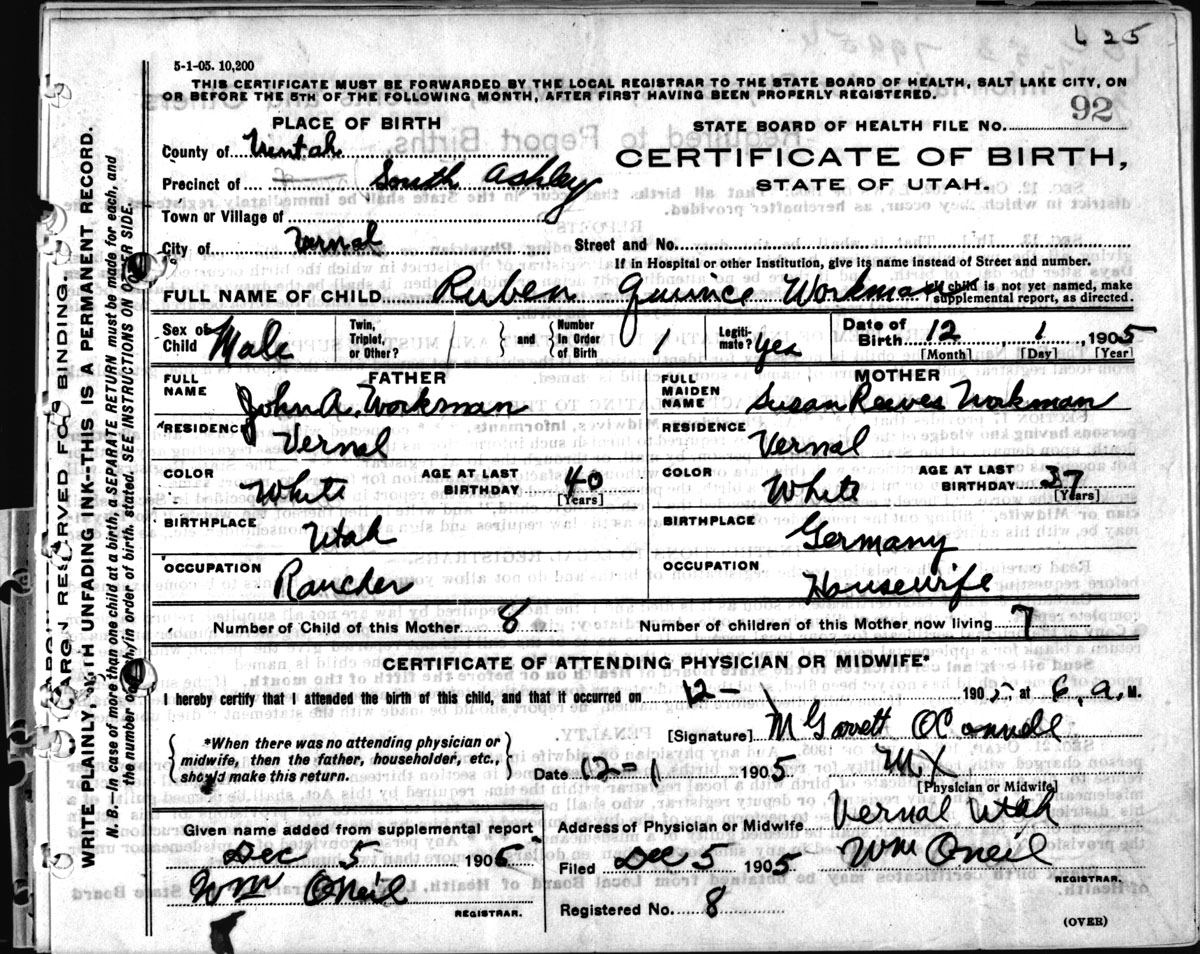 625
5-1-05. 10,200
THIS CERTIFICATE MUST BE FORWARDED BY THE LOCAL REGISTRAR TO THE STATE BOARD OF HEALTH, SALT LAKE CITY, ON
OR BEFORE THE 5TH OF THE FOLLOWING MONTH, AFTER FIRST HAVING BEEN PROPERLY REGISTERED.
PLACE OF BIRTH
STATE BOARD OF HEALTH FILE NO. 92
County of Uintah
CERTIFICATE OF BIRTH,
STATE OF UTAH.
Precinct of South Ashley
Town or Village of
City of Vernal
Street and No.
If in Hospital or other Institution, give its name instead of Street and number.
FULL NAME OF CHILD Ruben Quince Workman
If child is not yet named, make
supplemental report, as directed.
Sex of Child Male Twin, Triplet, or Other? and Number In Order of Birth 1 Legiti-mate? yes Date of Birth 12 1 1905
[Month] [Day] [Year]
FATHER MOTHER
FULL NAME John A. Workman FULL MAIDEN NAME Susan Reeves Workman
RESIDENCE Vernal RESIDENCE Vernal
COLOR White AGE AT LAST BIRTHDAY 40 [Years] COLOR White AGE AT LAST BIRTHDAY 37 [Years]
BIRTHPLACE Utah BIRTHPLACE Germany
OCCUPATION Rancher OCCUPATION Housewife
Number of Child of this Mother 8 Number of children of this Mother now living 7
CERTIFICATE OF ATTENDING PHYSICIAN OR MIDWIFE*
I hereby certify that I attended the birth of this child, and that it occurred on 12-1 1905 at 6 a. M.
[Signature] M Garett OConnell
*When there was no attending physician or
midwife, then the father, householder, etc.,
should make this return.
Date 12-1 1905
[Physician or Midwife]
Address of Physician or Midwife Vernal Utah
Given name added from supplemental report
Dec 5 1905
Wm ONeil
REGISTRAR.
Filed Dec 5 1905 Wm ONeil
REGISTRAR.
Registered No. 8
(OVER)
MARGIN RESERVED FOR BINDING.
WRITE PLAINLY, WITH UNFADING INK--THIS IS A PERMANENT RECORD.
N. B.--In case of more than one child at a birth, a SEPARATE RETURN must be made for each, and
the number of each, in order of birth, stated. SEE INSTRUCTIONS ON OTHER SIDE.